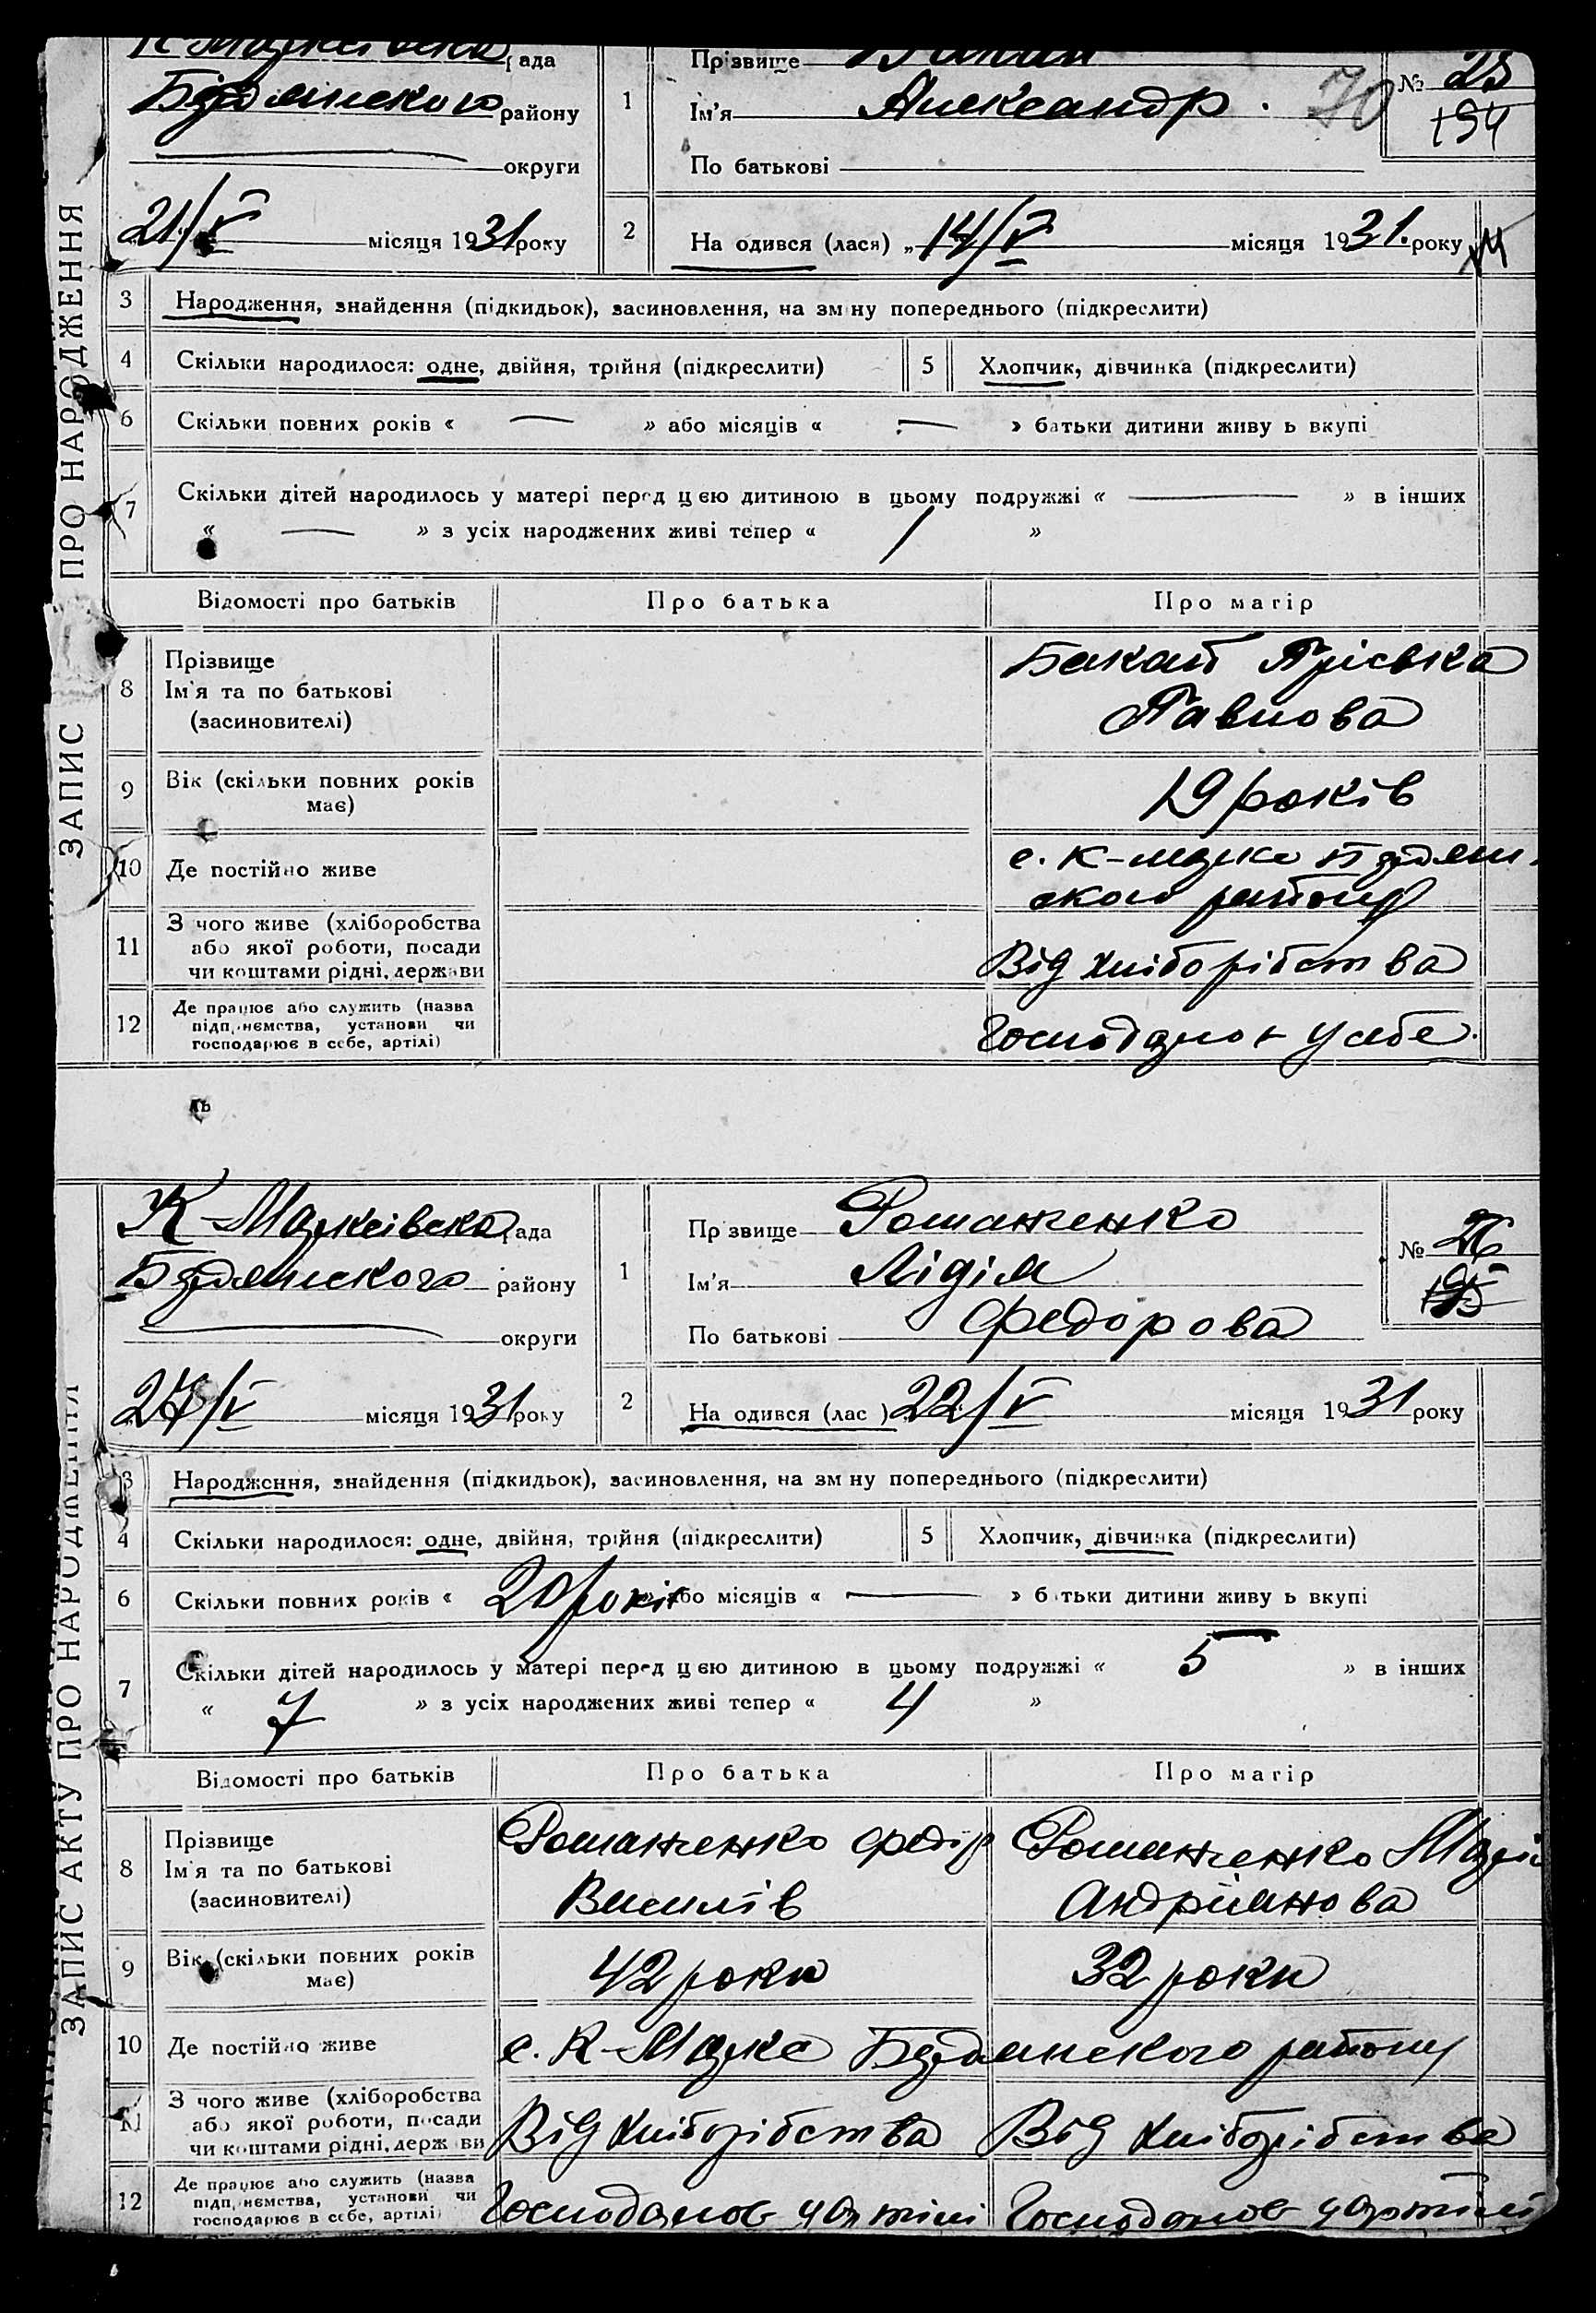 рада
Бердянского району
округи
21/V місяця 1931 року
1
Прізвище Бакай
Ім'я Александр.
По батькові
70
№ 25
194
2
На одився (лася) „ 14/V місяця 1931. року
ЗАПИС ПРО НАРОДЖЕННЯ
3 Народження, знайдення (підкидьок), засиновлення, на зм ну попереднього (підкреслити)
4 Скільки народилося: одне, двійня, трійня (підкреслити) 5 Хлопчик, дівчинка (підкреслити)
6 Скільки повних років « — » або місяців « — » батьки дитини живу ь вкупі
7 Скільки дітей народилось у матері перед цею дитиною в цьому подружжі « — » в інших
« — » з усіх народжених живі тепер « 1 »
Відомості про батьків Про батька Про матір
8 Прізвище
Ім'я та по батькові
(засиновителі)
Бакай Пріська
Павлова
9 Вік (скільки повних років
має)
19 років
10 Де постійно живе
с. К-Марке Бердян.
ского району
11 З чого живе (хліборобства
або якої роботи, посади
чи коштами рідні, держави
Від хліборібства
12 Де працює або служить (назва
підпр нємства, установи чи
господарює в себе, артілі)
у себе.
ль
К-Марксівска рада
Бердянского району
округи
27/V місяця 1931 року
1
Пр звище Романченко
Ім'я Лідія
По батькові Федорова
№ 26
195
2
На одився (лас ) 22/V місяця 1931 року
ЗАПИС АКТУ ПРО НАРОДЖЕННЯ
3 Народження, знайдення (підкидьок), засиновлення, на зм ну попереднього (підкреслити)
4 Скільки народилося: одне, двійня, трійня (підкреслити) 5 Хлопчик, дівчинка (підкреслити)
6 Скільки повних років « 20 років » або місяців « — » б тьки дитини живу ь вкупі
7 Скільки дітей народилось у матері перед цею дитиною в цьому подружжі « 5 » в інших
« 7 » з усіх народжених живі тепер « 4 »
Відомості про батьків Про батька Про матір
8 Прізвище
Ім'я та по батькові
(засиновителі)
Романченко Федір
Василів
Романченко Марія
Андріянова
9 Вік (скільки повних років
має)
42 роки 32 роки
10 Де постійно живе с. К-Марке Бердянского району
11 З чого живе (хліборобства
або якої роботи, посади
чи коштами рідні, держ ви
Від хліборібства Від хліборібства
12 Де працює або служить (назва
підпр нємства, установи чи
господарює в себе, артілі)
у артілі у артілі